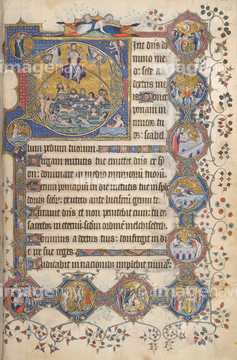 ixit dñs d
omino me
o: sede a
dextris meis
Donec
ponam in
imicos tu
os: scabel
lum pedum tuorum.
Virgam virtutis tue emittet dñs ex sy
on: dominare in medio inimicorum tuorū.
Tecum principiū in die virtutis tue in splē
ex utero ante luciferū genui te.
Iuravit dñs et non penitebit eum: tu es
sacerdos in eternū scdm ordinē melchisedech.
Dominus a dextris tuis: confregit in di
e ire sue reges.
Iudicabit in nacionib; implebit ruinas: